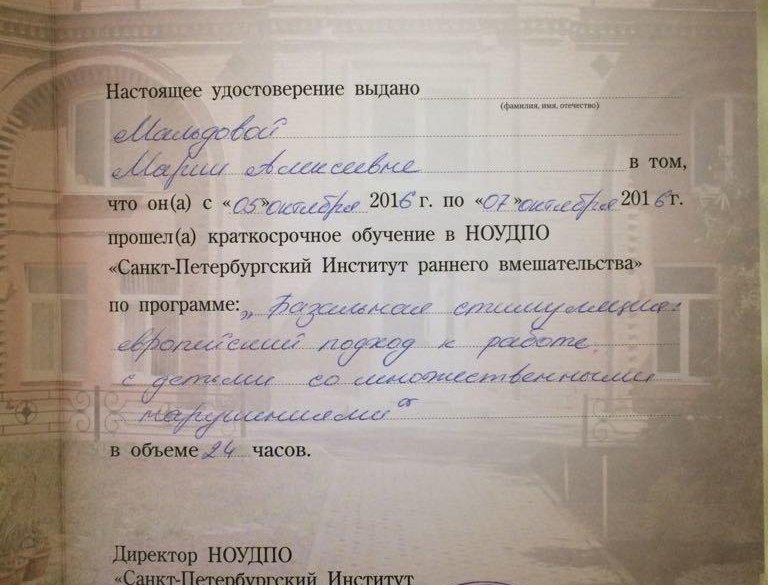 Настоящее удостоверение выдано
(фамилия, имя, отчество)
Мальдовой
Марии Алексеевне в том,
что он(а) с «05»октября 2016 г. по «07»октября 2016 г.
прошел(а) краткосрочное обучение в НОУДПО
«Санкт-Петербургский Институт раннего вмешательства»
по программе: „Базальная стимуляция:
европейский подход к работе
с детьми со множественными
нарушениями“
в объеме 24 часов.
Директор НОУДПО
«Санкт-Петербургский Институт